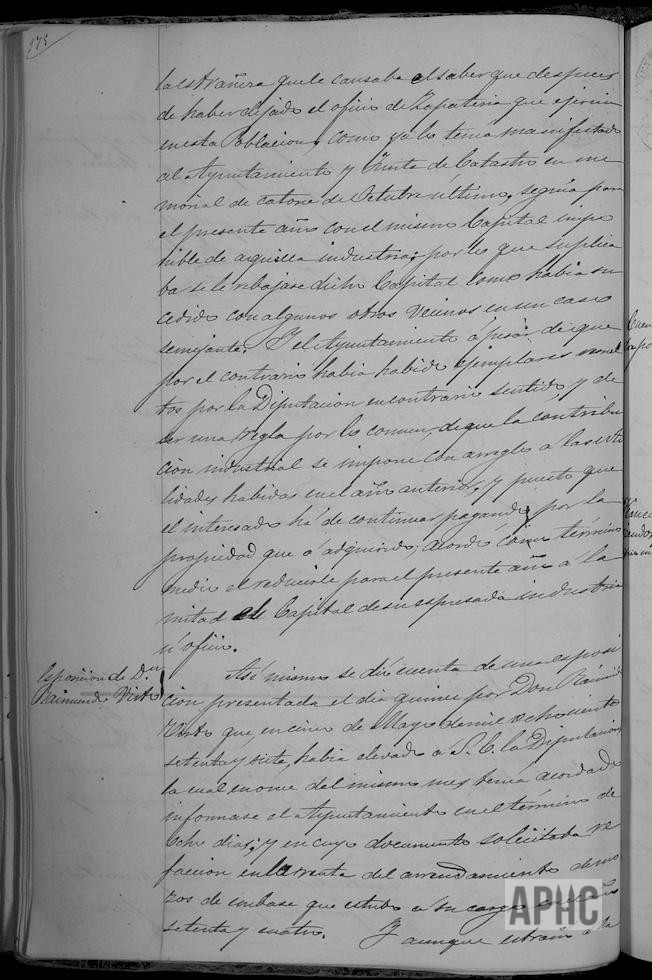 175
la estrañeza que le causaba el saber que despues
de haber dejado el oficio de Zapateria que ejercia
en esta Poblacion, como ya lo tenia manifestado
al Ayuntamiento y Junta de Catastro en me
morial de catorce de Octubre ultimo, seguia para
el presente año con el mismo Capital impo
nible de aquella industria; por lo que suplica
ba se le rebajase dicho Capital como habia su
cedido con algunos otros vecinos en un caso
semejante. Y el Ayuntamiento á pesar de que
por el contrario habia habido ejemplares
tos por la Diputacion en contrario sentido, y de
ser una regla por lo comun, de que la contribu
cion industrial se impone con arreglo a las uti
lidades habidas en el año anterior, y puesto que
el interesado há de continuar pagando por la
propiedad que á adquirido; acordó como término
medio el reducirle para el presente año á la
mitad el Capital de su espresada industria
ú oficio.
Esposicion de Dn
Raimundo Virto
Asi mismo se dió cuenta de una esposi
cion presentada el dia quince por Don Raimundo
Virto que, en cinco de Mayo de mil ochocientos
setenta y siete, habia elevado a S. E. la Diputacion,
la cual en once del mismo mes tenia acordado
informase el Ayuntamiento en el término de
ocho dias; y en cuyo documento solicitaba re
faccion en la renta del arrendamiento de mo
zos de embase que estubo á su cargo en el año
setenta y cuatro. Y aunque estraña la
APHC